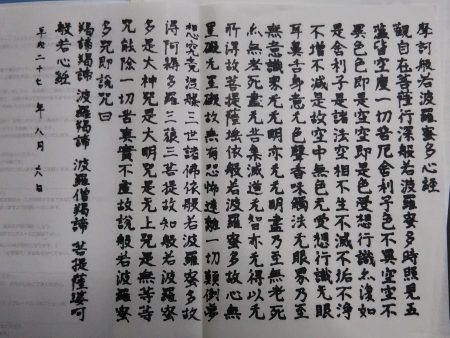 摩訶般若波羅蜜多心経
観自在菩薩行深般若波羅蜜多時照見五
蘊皆空度一切苦厄舎利子色不異空空不
異色色即是空空即是色受想行識亦復如
是舎利子是諸法空相不生不滅不垢不浄
不増不減是故空中無色无受想行識无眼
耳鼻舌身意无色聲香味觸法无眼界乃至
無意識界无无明亦无无明盡乃至無老死
亦無老死盡无苦集滅道无智亦无得以无
所得故菩提薩埵依般若波羅蜜多故心無
罣礙无罣礙故無有恐怖遠離一切顛倒夢
想究竟涅槃三世諸佛依般若波羅蜜多故
得阿耨多羅三藐三菩提故知般若波羅蜜
多是大神咒是大明咒是无上咒是無等等
咒能除一切苦真實不虚故説般若波羅蜜
多咒即説咒曰
羯諦羯諦 波羅羯諦 波羅僧羯諦 菩提薩婆呵
般若心経
平成二十七年八月六日